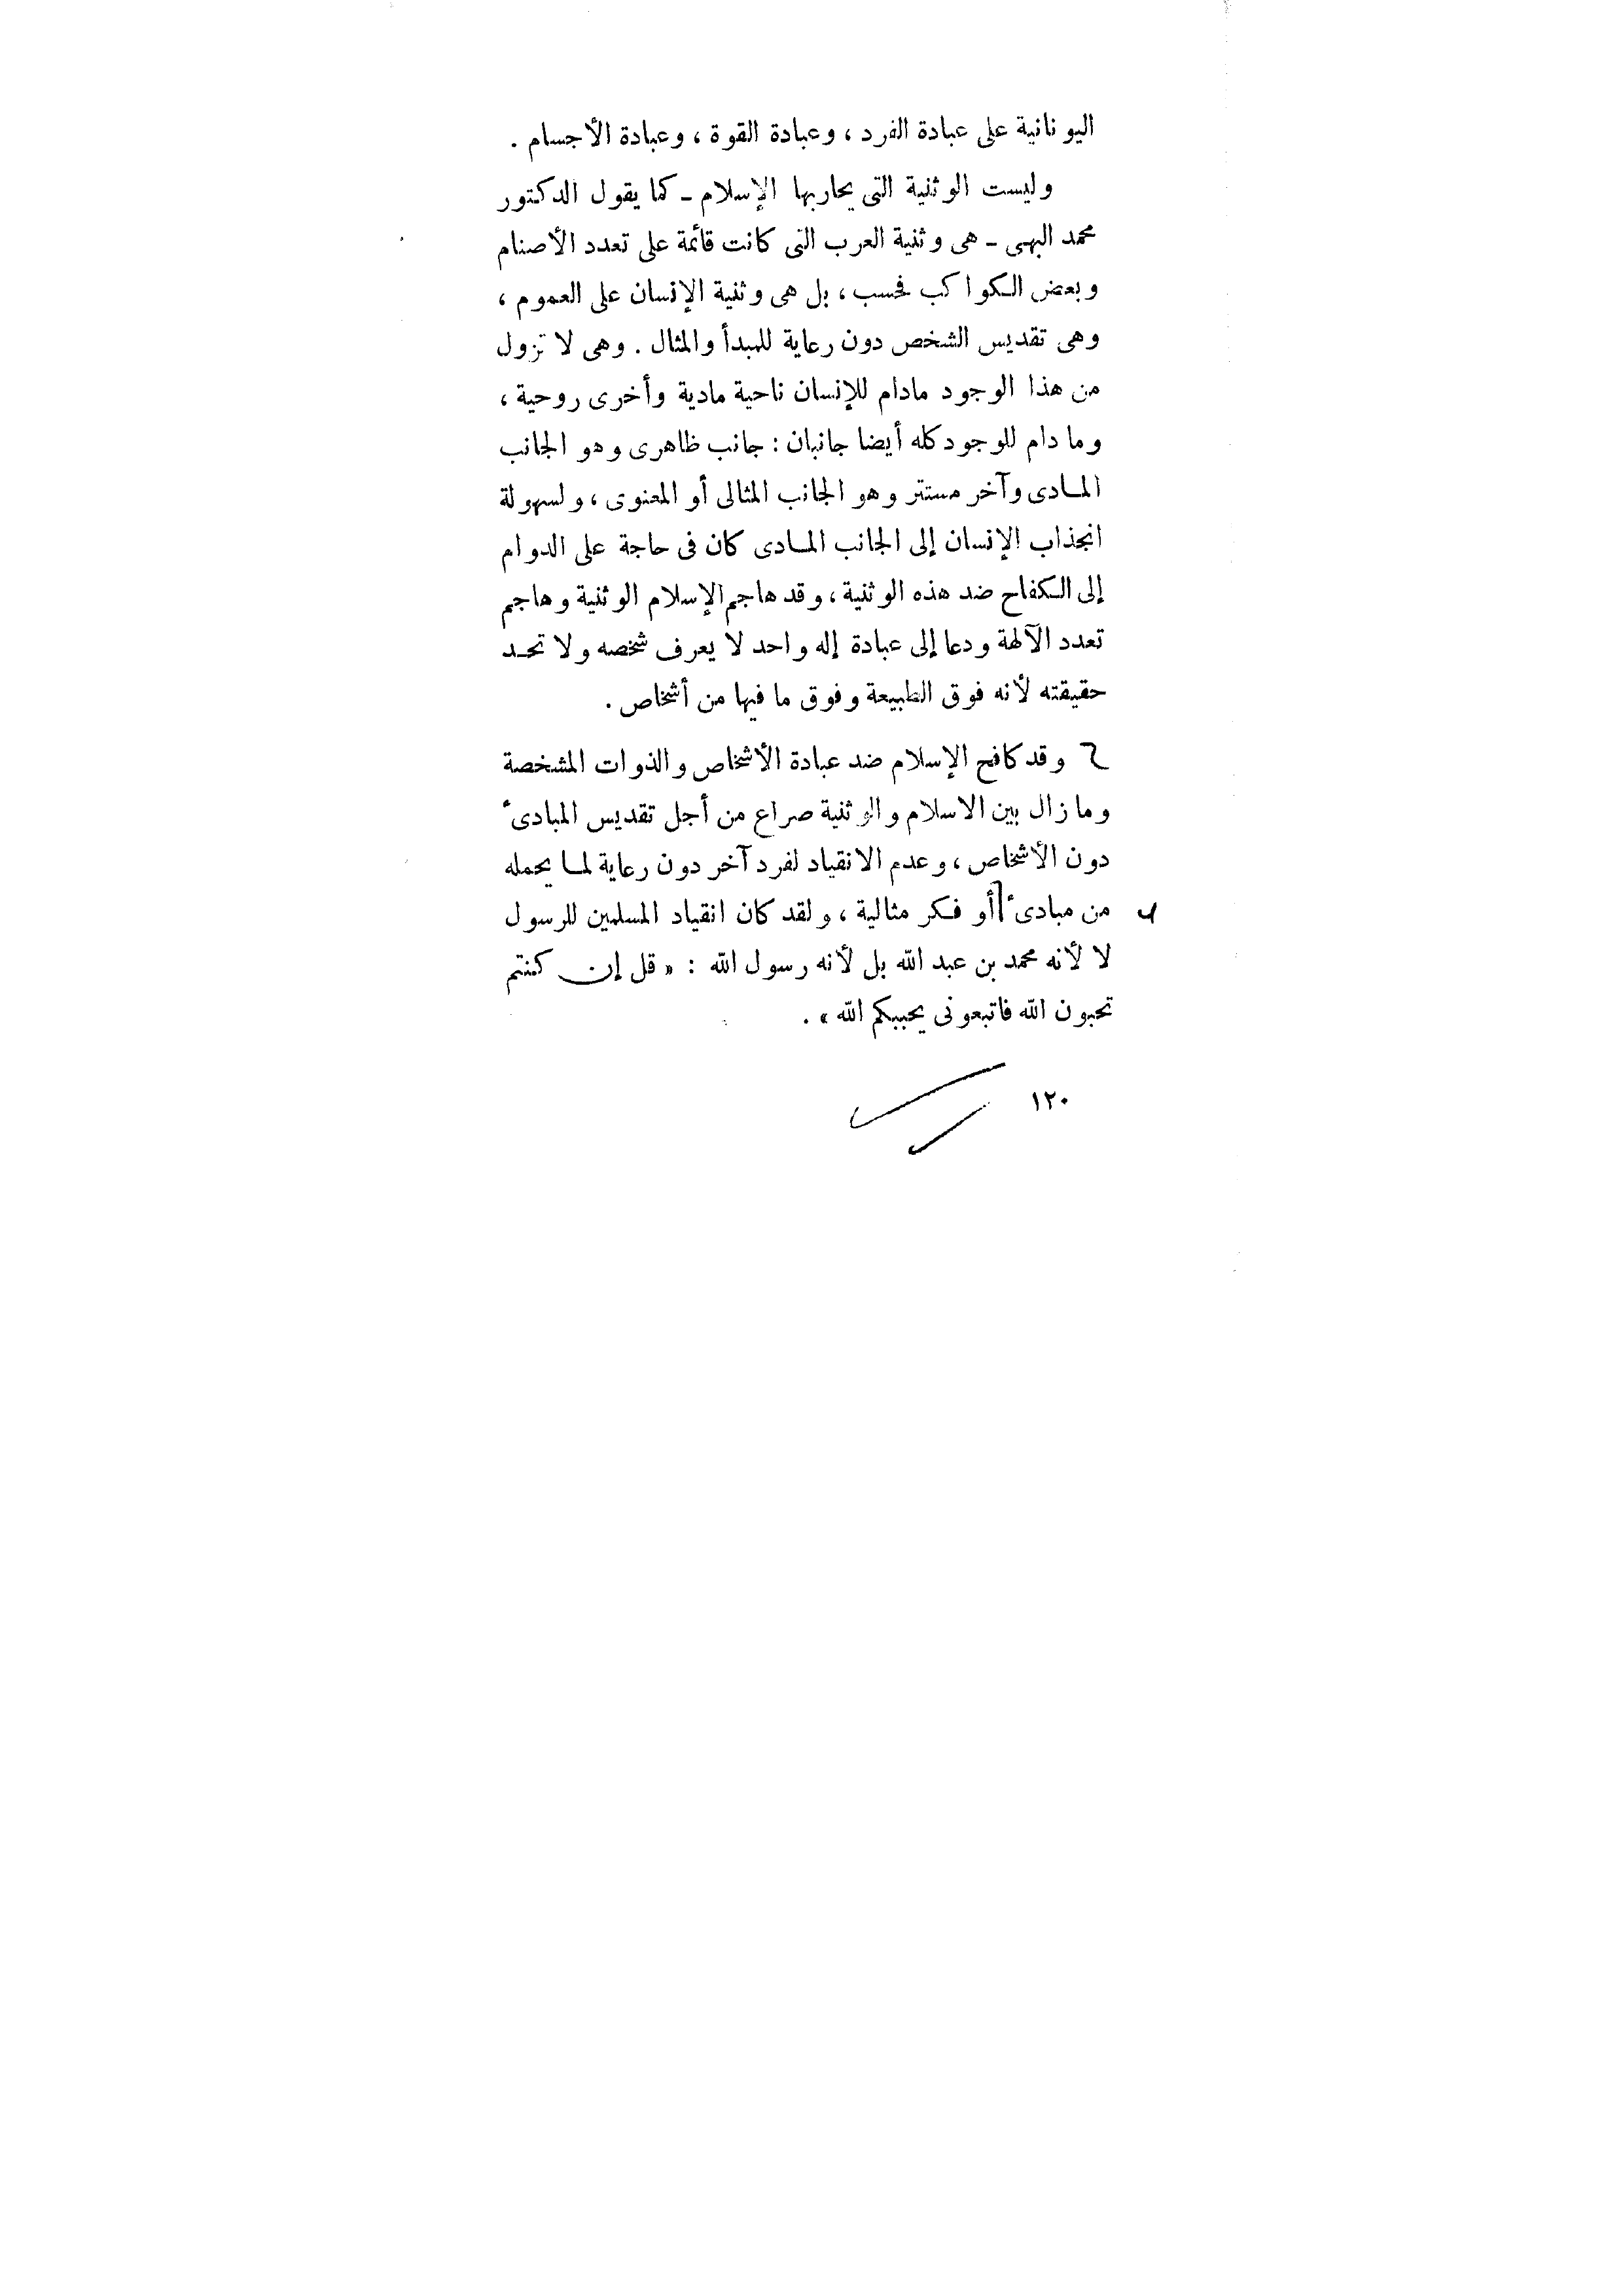 اليونانية على عبادة الفرد ، وعبادة القوة ، وعبادة الأجسام .
وليست الوثنية التى يحاربها الإسلام ـ كما يقول الدكتور
محمد البهى ـ هى وثنية العرب التى كانت قائمة على تعدد الأصنام
وبعض الكواكب فحسب ، بل هى وثنية الإنسان على العموم ،
وهى تقديس الشخص دون رعاية للمبدأ والمثال . وهى لا تزول
من هذا الوجود مادام للإنسان ناحية مادية وأخرى روحية ،
وما دام للوجود كله أيضا جانبان : جانب ظاهرى وهو الجانب
المادى وآخر مستتر وهو الجانب المثالى أو المعنوى ، ولسهولة
انجذاب الإنسان إلى الجانب المادى كان فى حاجة على الدوام
إلى الكفاح ضد هذه الوثنية ، وقد هاجم الإسلام الوثنية وهاجم
تعدد الآلهة ودعا إلى عبادة إله واحد لا يعرف شخصه ولا تحد
حقيقته لأنه فوق الطبيعة وفوق ما فيها من أشخاص .
وقد كافح الإسلام ضد عبادة الأشخاص والذوات المشخصة
وما زال بين الاسلام والوثنية صراع من أجل تقديس المبادىء
دون الأشخاص ، وعدم الانقياد لفرد آخر دون رعاية لما يحمله
من مبادىء أو فكر مثالية ، ولقد كان انقياد المسلمين للرسول
لا لأنه محمد بن عبد الله بل لأنه رسول الله : « قل إن كنتم
تحبون الله فاتبعونى يحببكم الله » .
١٢٠